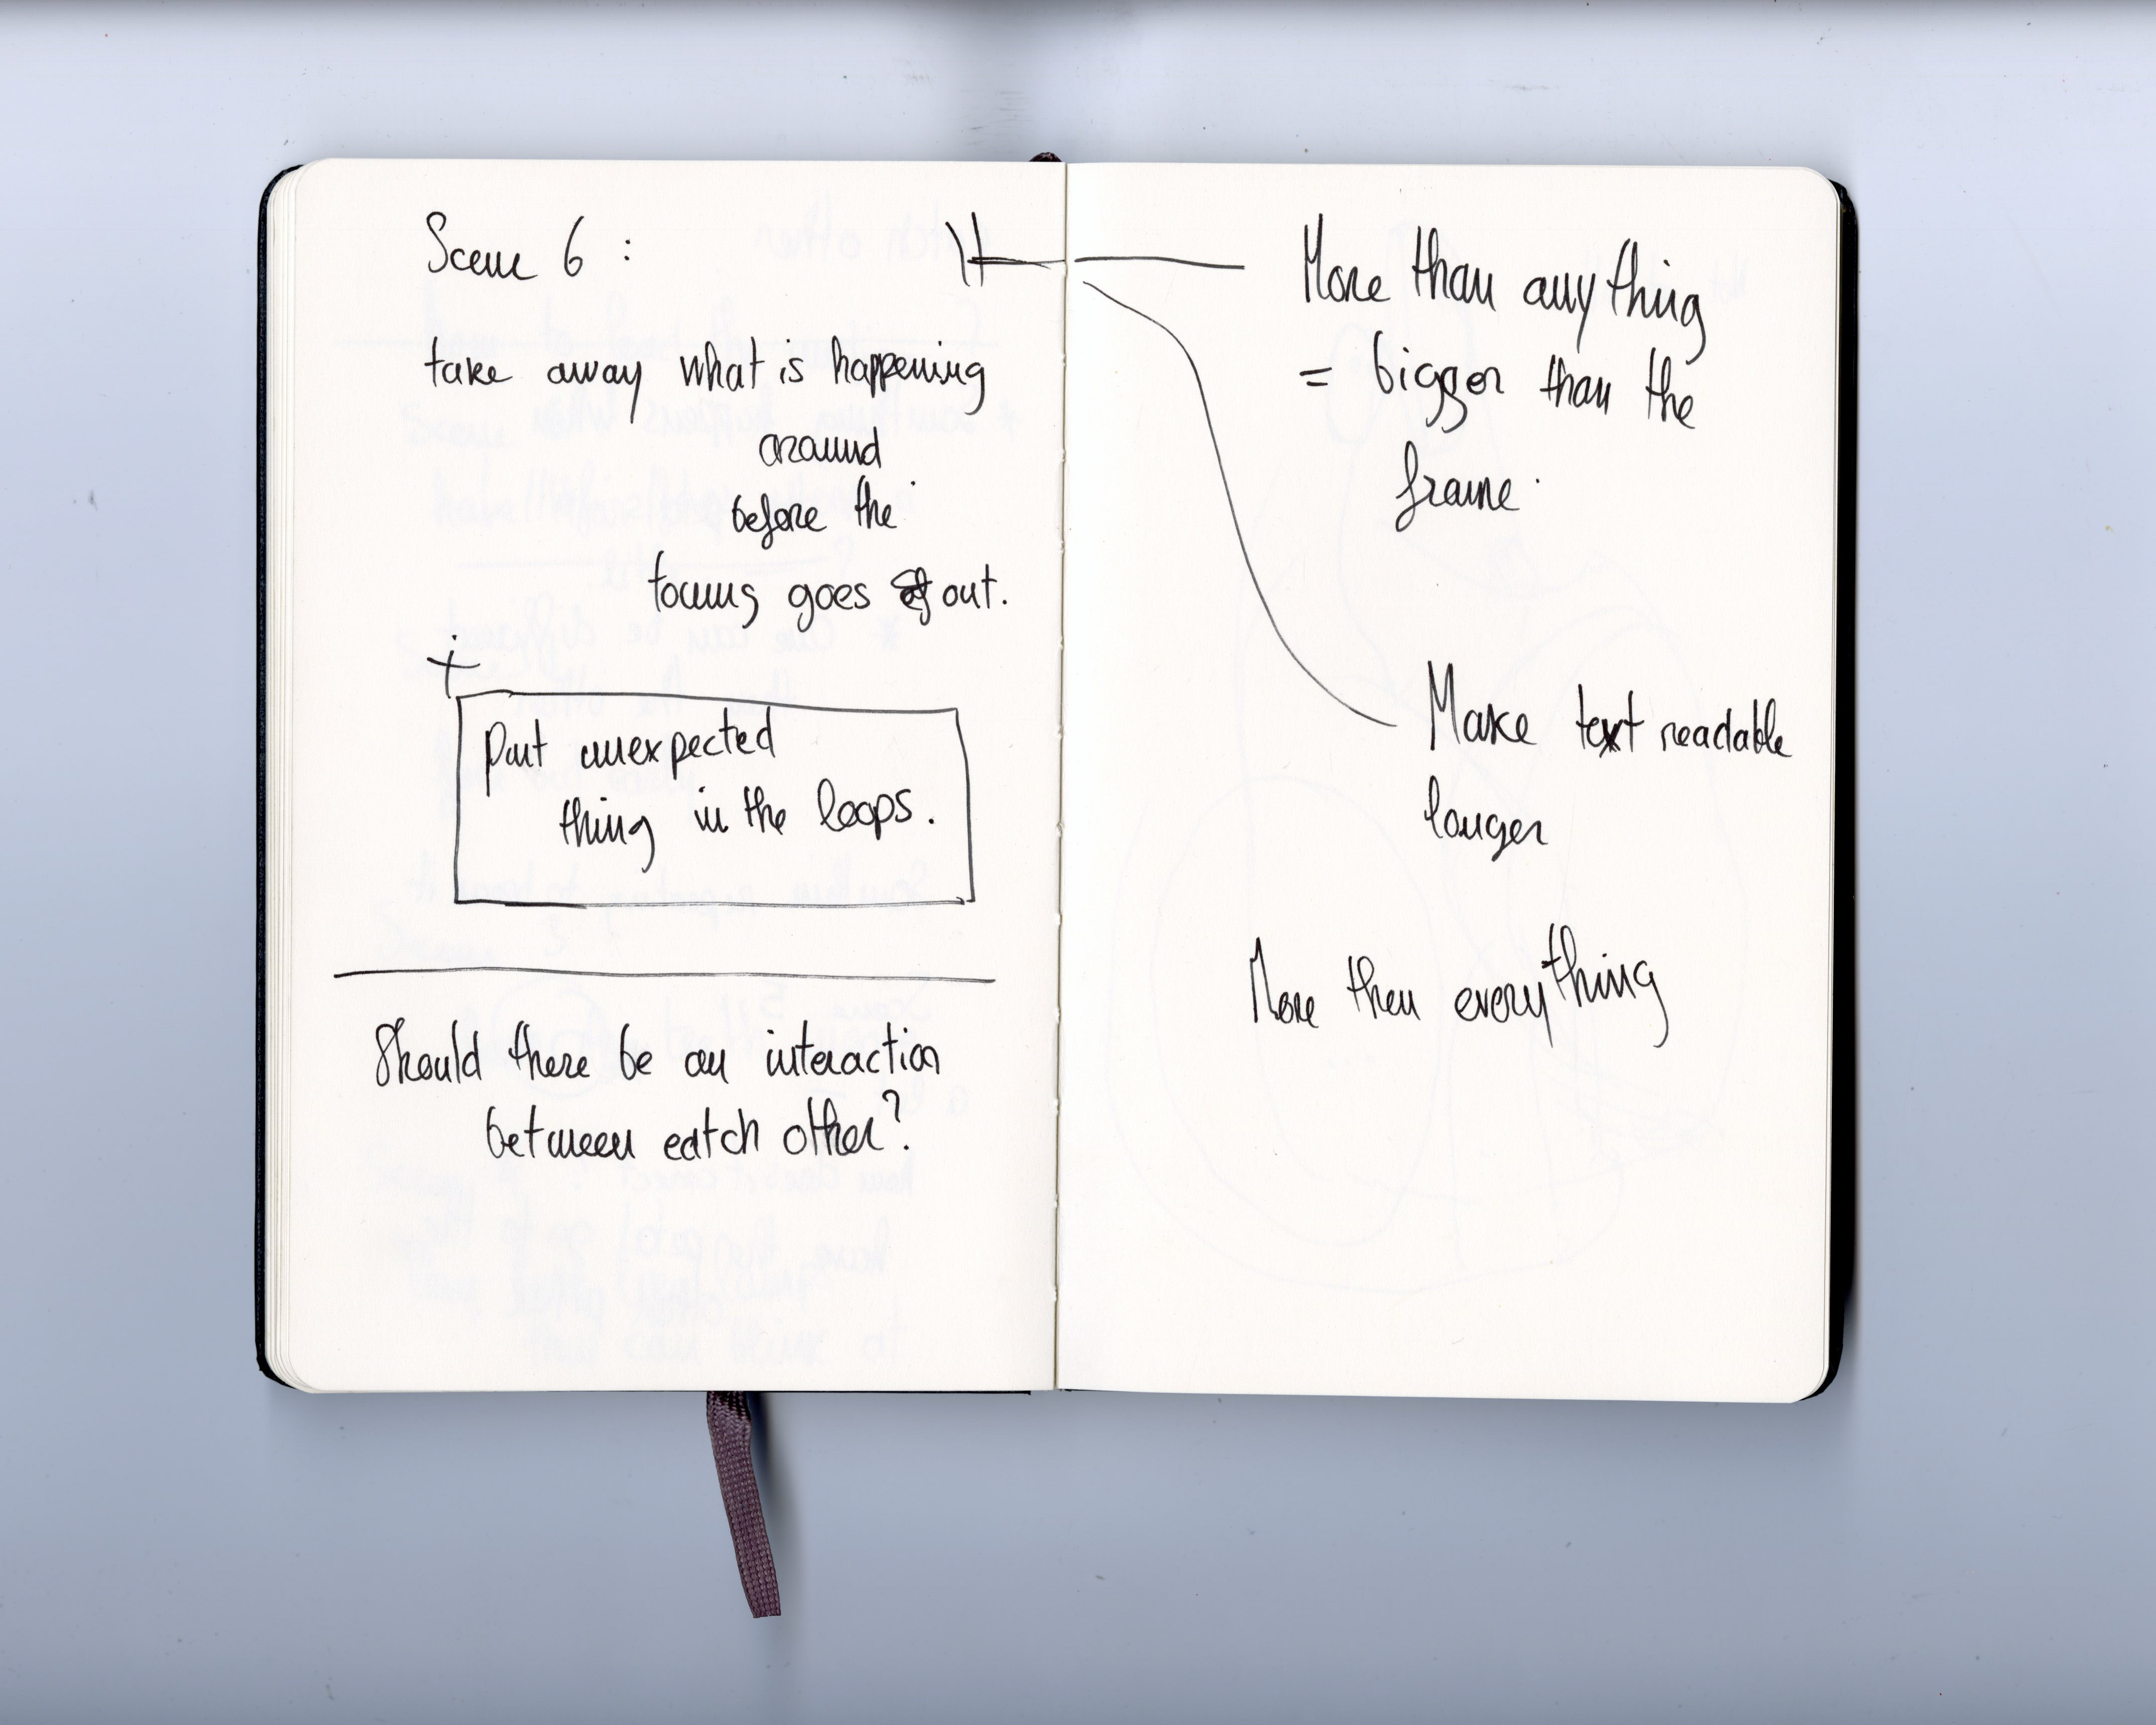 Scene 6 :
take away what is happening
around
before the
focus goes out.
+
Put unexpected
thing in the loops.
Should there be an interaction
between eatch other?
More than anything
= bigger than the
frame.
Make text readable
longer
More then everything